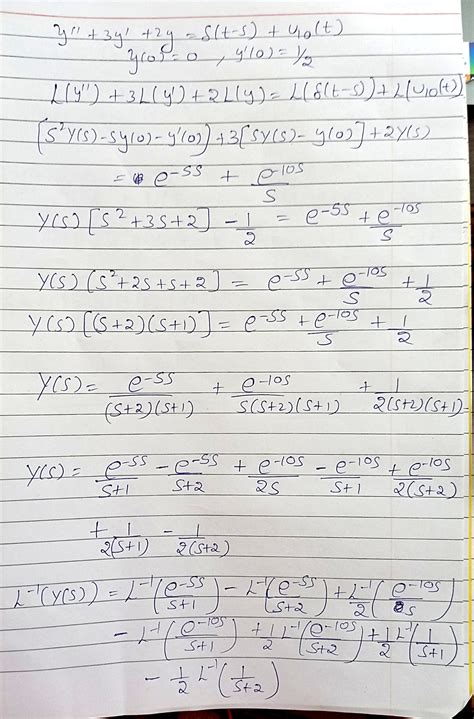 y'' + 3y' + 2y = δ(t-5) + u10(t)
y(0) = 0 , y'(0) = 1/2
L(y'') + 3L(y') + 2L(y) = L(δ(t-5)) + L(u10(t))
[s²Y(s) - sy(0) - y'(0)] + 3[sY(s) - y(0)] + 2Y(s)
= e^-5s + e^-10s/s
Y(s)[s² + 3s + 2] - 1/2 = e^-5s + e^-10s/s
Y(s)[s² + 2s + s + 2] = e^-5s + e^-10s/s + 1/2
Y(s)[(s+2)(s+1)] = e^-5s + e^-10s/s + 1/2
Y(s) = e^-5s/(s+2)(s+1) + e^-10s/s(s+2)(s+1) + 1/2(s+2)(s+1)
Y(s) = e^-5s/s+1 - e^-5s/s+2 + e^-10s/2s - e^-10s/s+1 + e^-10s/2(s+2)
+ 1/2(s+1) - 1/2(s+2)
L^-1(Y(s)) = L^-1(e^-5s/s+1) - L^-1(e^-5s/s+2) + L^-1/2(e^-10s/s)
- L^-1(e^-10s/s+1) + 1/2 L^-1(e^-10s/s+2) + 1/2 L^-1(1/s+1)
- 1/2 L^-1(1/s+2)